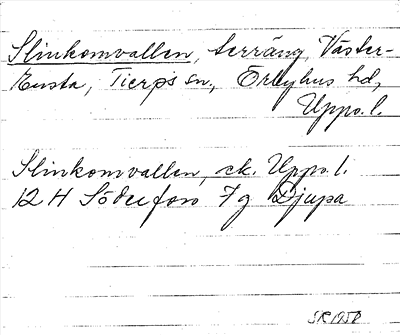 Slinkomvallen, terräng, Väster-
Ensta, Tierps sn., Örbyhus hd,
Upps. l.
Slinkomvallen, ek. Upps. l.
12 H Söderfors 7 g Djupa
SR 1958